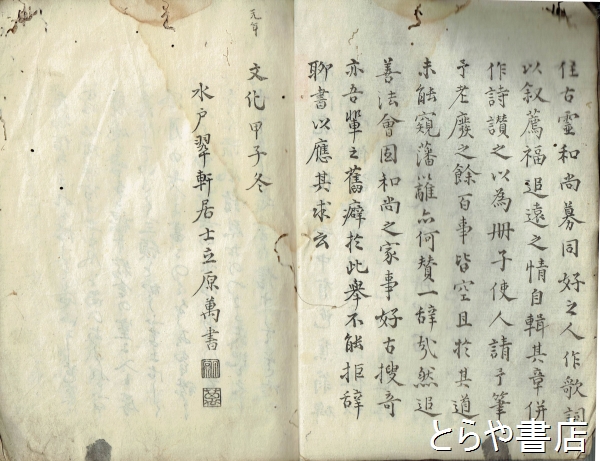 住古霊和尚募同好之人作歌詞
以叙薦福追遠之情自輯其章併
作詩讃之以為冊子使人請予筆
予老廢之餘百事皆空且於其道
未能窺藩籬亦何賛一辞哉然追
善法會固和尚之家事好古搜奇
亦吾輩之舊癖於此舉不能拒辞
聊書以應其求云
元年
文化甲子冬
水戸翠軒居士立原萬書
とらや書店